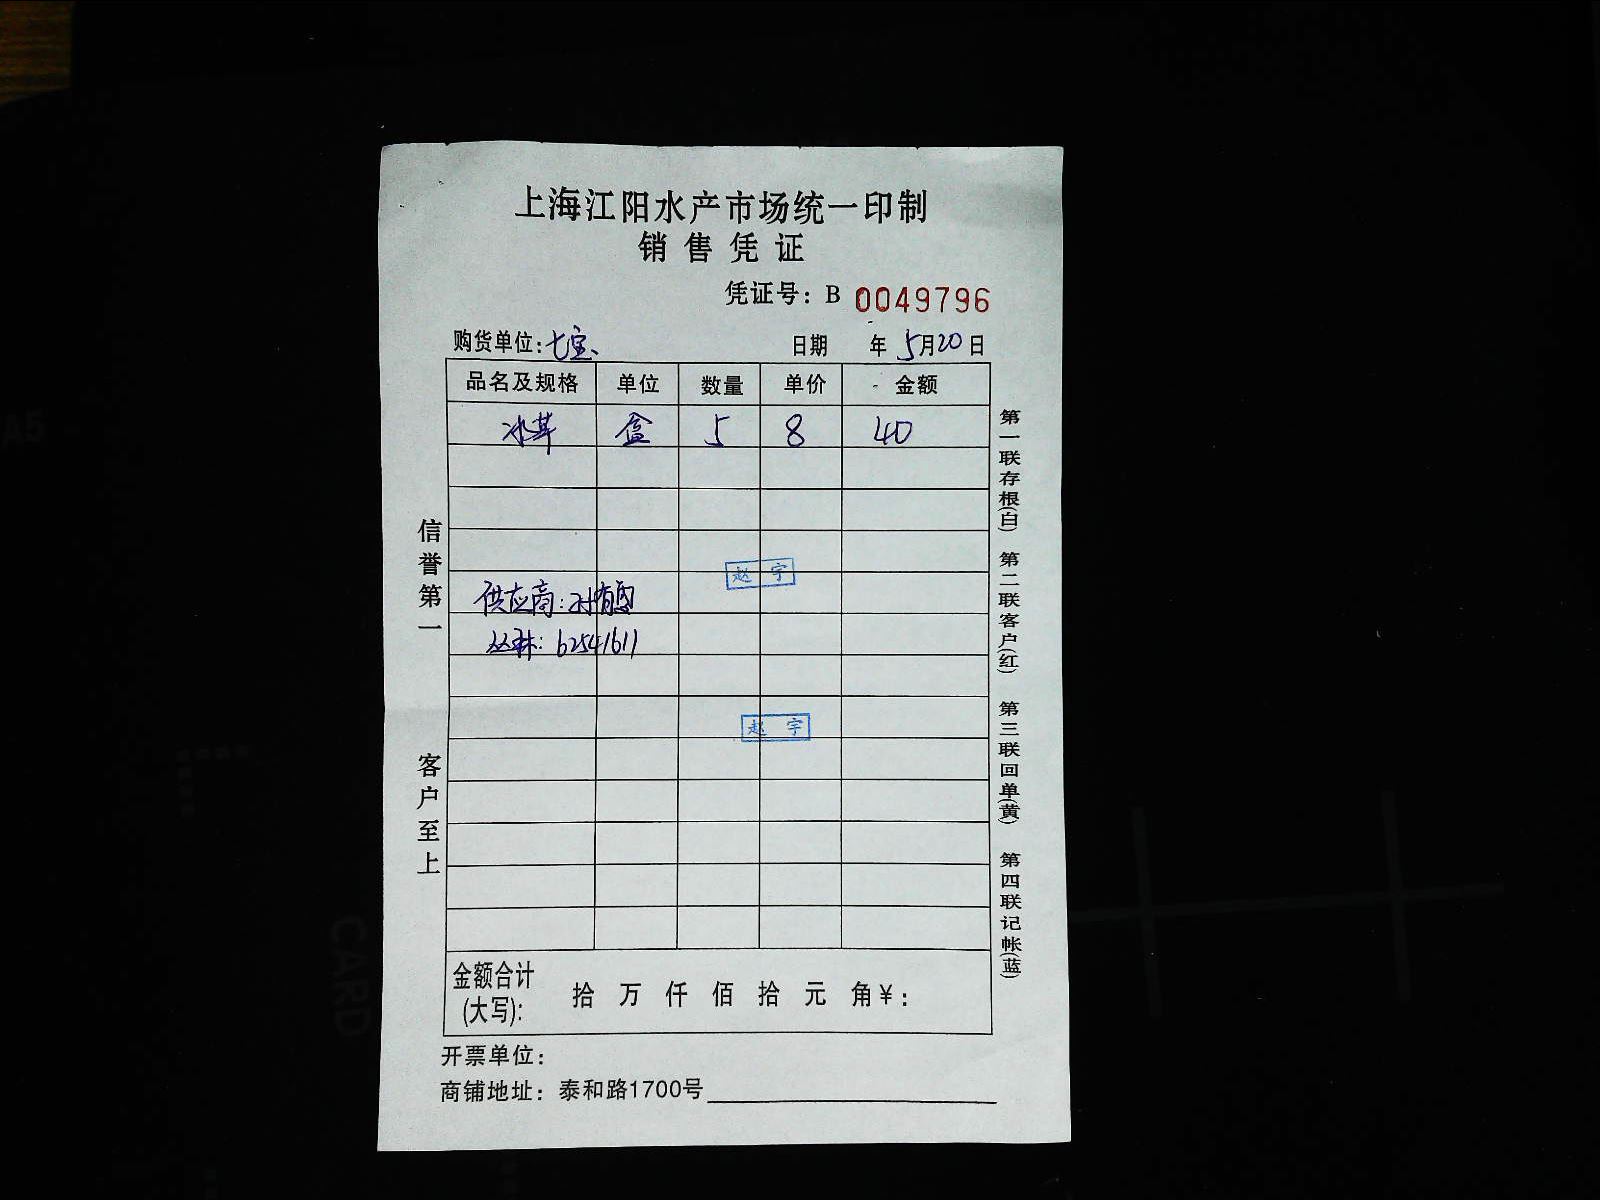 上海江阳水产市场统一印制
销售凭证
凭证号：B 0049796
购货单位：七宝 日期 年 5月20日
品名及规格 单位 数量 单价 金额
冰草 盒 5 8 40
赵宇
供应商：
丛林：62541611
赵宇
金额合计(大写)： 拾 万 仟 佰 拾 元 角 ¥：
开票单位：
商铺地址：泰和路1700号
信誉第一 客户至上
第一联存根(白) 第二联客户(红) 第三联回单(黄) 第四联记帐(蓝)
A5
CARD